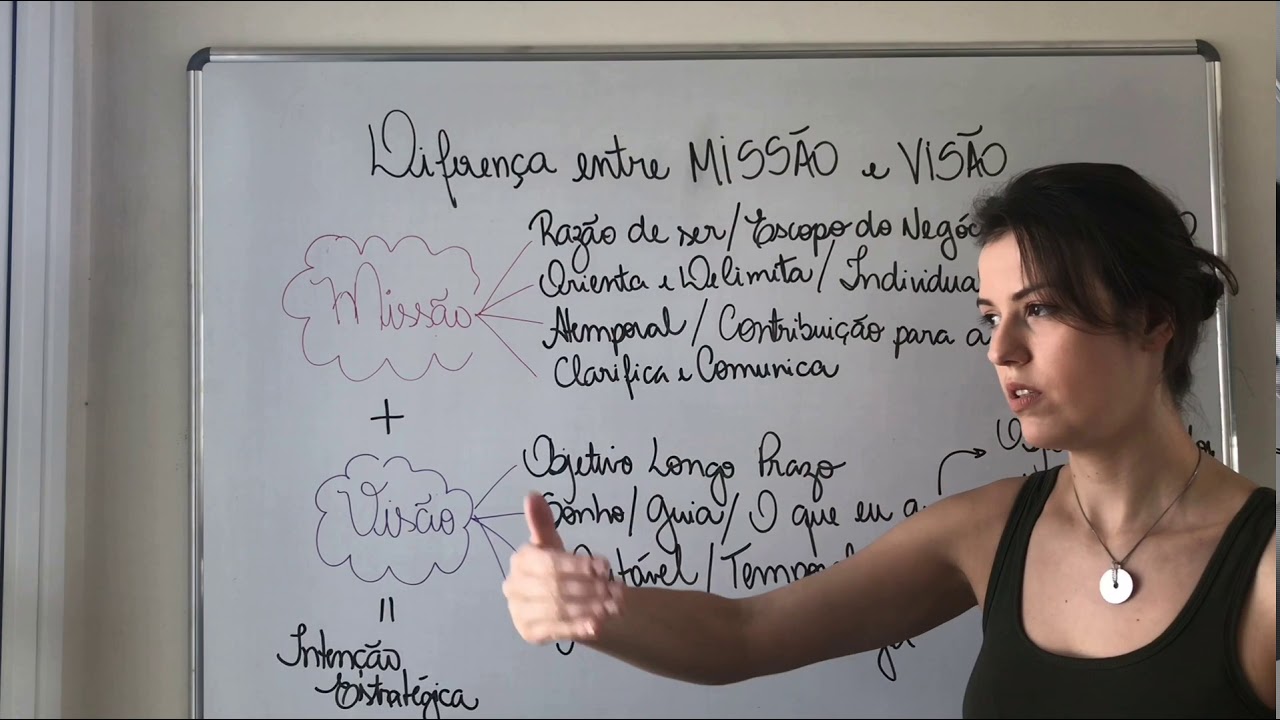 Diferença entre MISSÃO e VISÃO
Razão de ser / Escopo do Negóc
Missão
Orienta e Delimita / Individua
Atemporal / Contribuição para a
Clarifica e Comunica
+
Objetivo Longo Prazo
Visão
Sonho / Guia / O que eu
tável / Tempo
=
Intenção
Estratégica